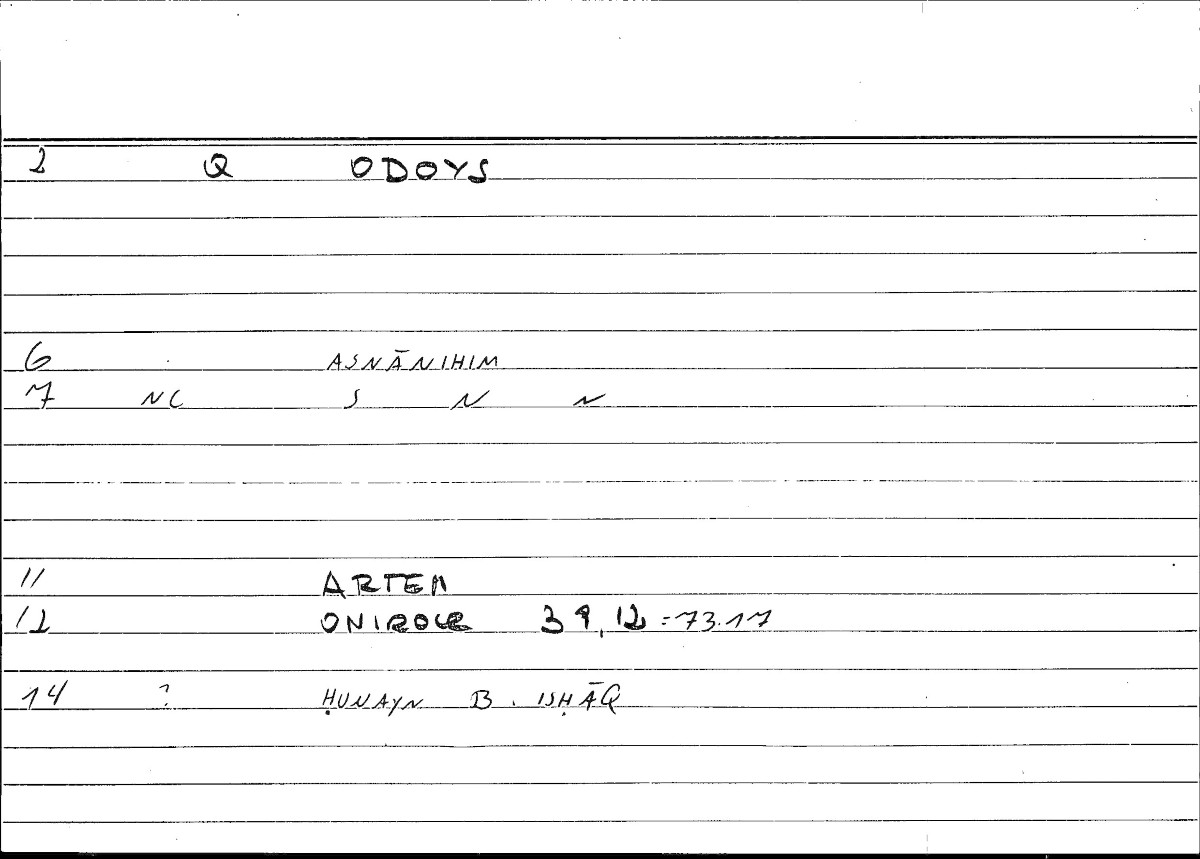 2 Q ODOYS
6 ASNĀNIHIM
7 NC S N N
11 ARTEM
12 ONIROCR 39,12=73.17
14 ? ḤUNAYN B. ISḤĀQ